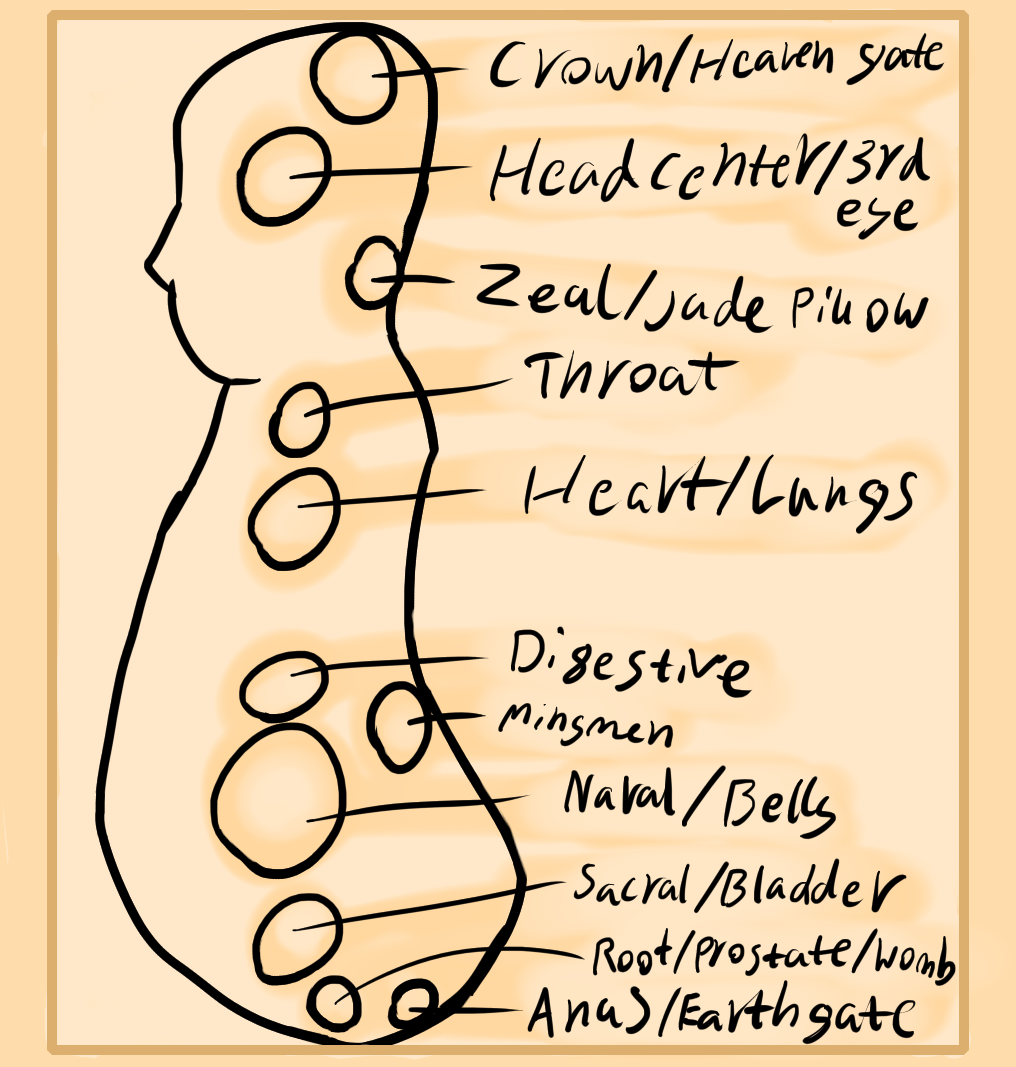 Crown/Heaven gate
Head center/3rd
eye
Zeal/Jade Pillow
Throat
Heart/Lungs
Digestive
mingmen
Naval/Belly
Sacral/Bladder
Root/prostate/womb
Anus/Earth gate